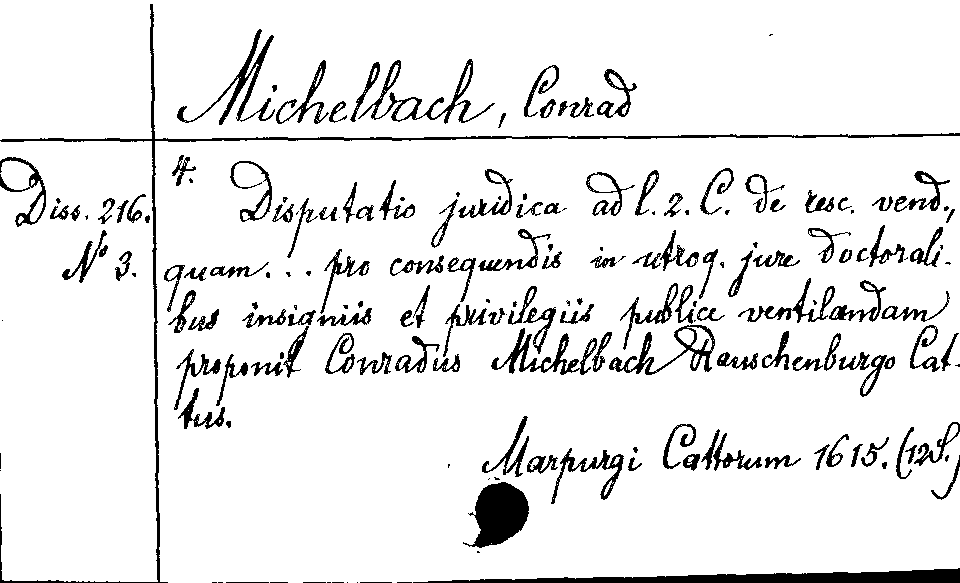 Michelbach, Conrad
4.
Diss. 216.
N° 3.
Disputatio juridica ad l. 2. C. de resc. vend.,
quam... pro consequendis in utroq. jure doctorali-
bus insigniis et privilegiis publice ventilandam
proponit Conradus Michelbach Rauschenburgo Cat-
tus.
Marpurgi Cattorum 1615. (12S.)